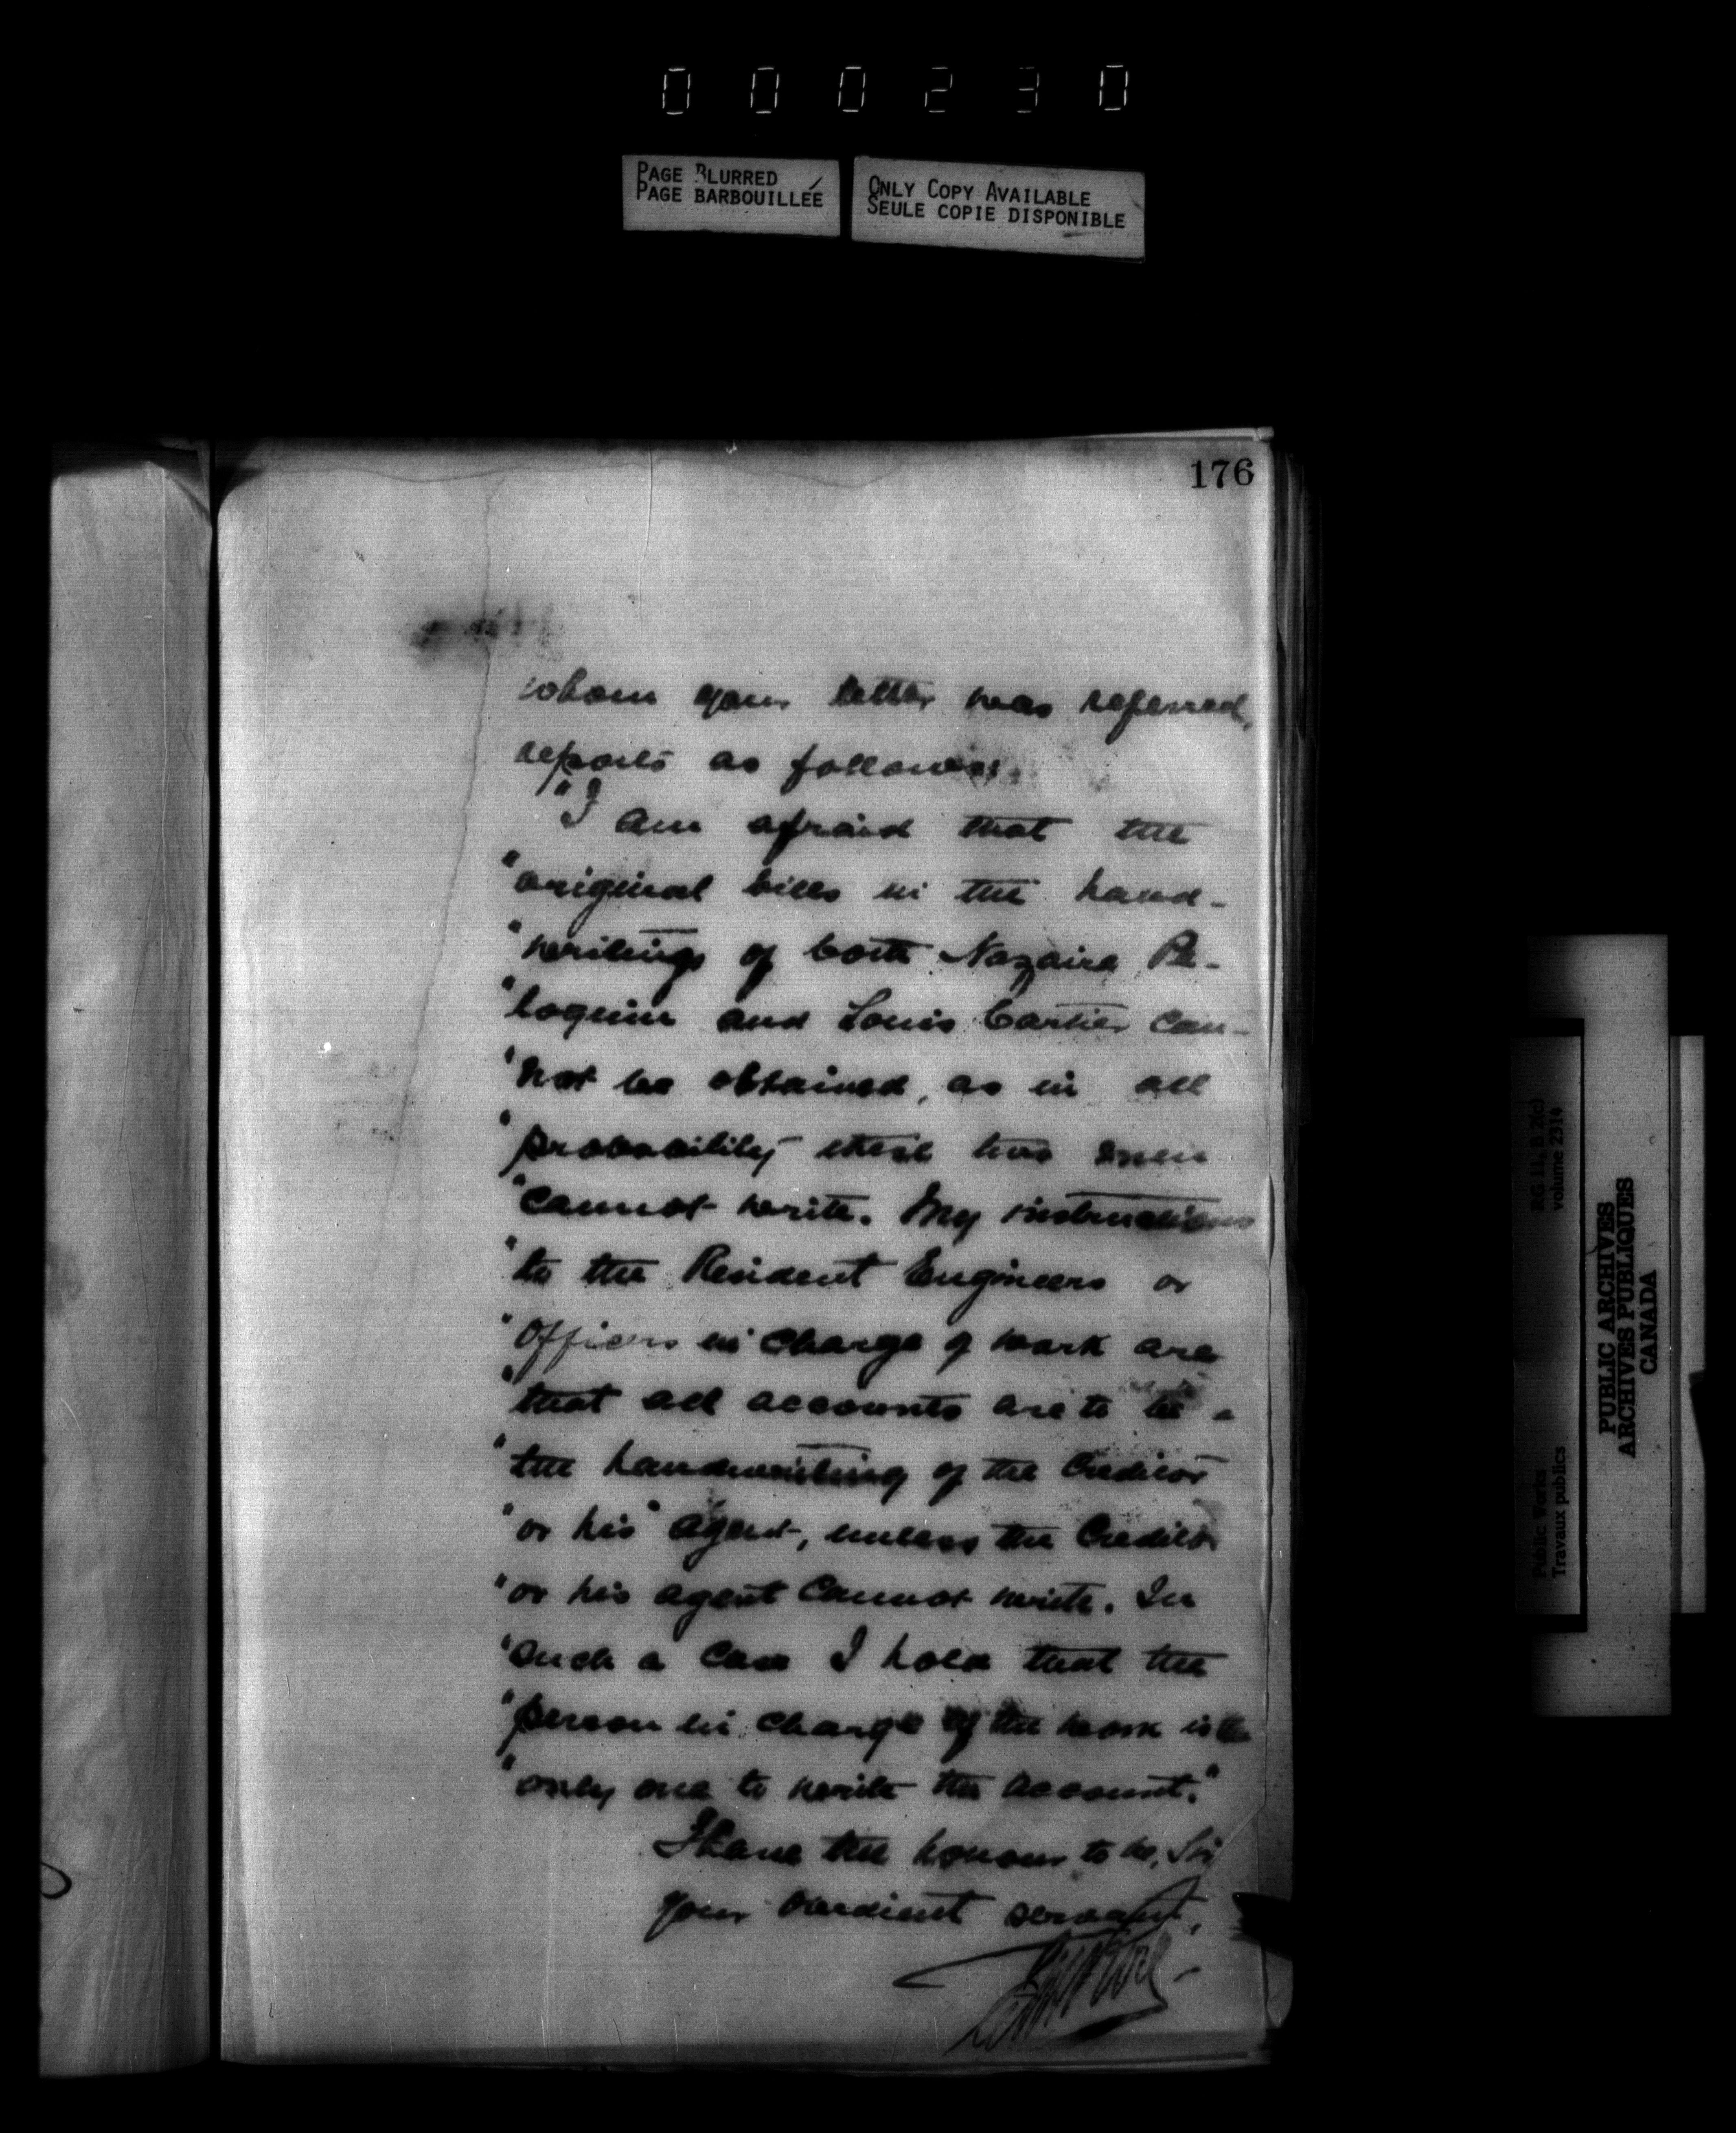 000230
PAGE BLURRED
PAGE BARBOUILLÉE
ONLY COPY AVAILABLE
SEULE COPIE DISPONIBLE
176
whom your letter was referred,
reports as follows:
"I am afraid that the
"original bills in the hand-
"writings of both Nazaire Pe-
"loquin and Louis Cartier can-
"not be obtained, as in all
"probability these two men
"cannot write. My instructions
"to the Resident Engineers or
"Officers in charge of work are
"that all accounts are to be
"the handwriting of the Creditor
"or his agent, unless the Creditor
"or his agent cannot write. In
"such a case I hold that the
"person in charge of the work is the
"only one to write the account."
I have the honour to be, Sir
your obedient servant,
RG 11, B 2(c)
volume 2314
Public Works
Travaux publics
PUBLIC ARCHIVES
ARCHIVES PUBLIQUES
CANADA